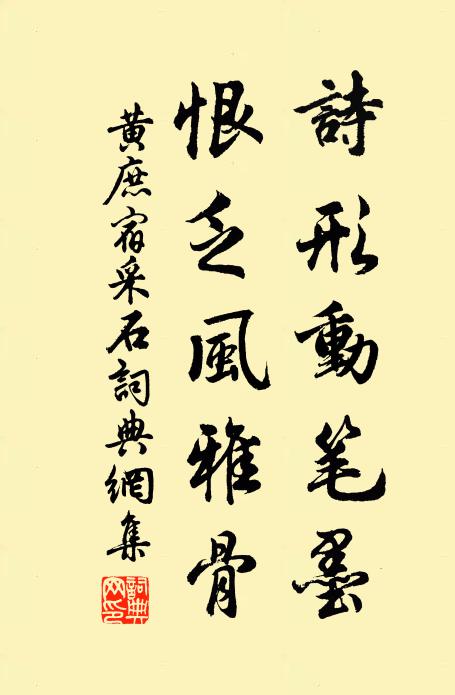 詩形動笔墨
恨乏風雅骨
黃庶宿采石詞典網集
詞典网印